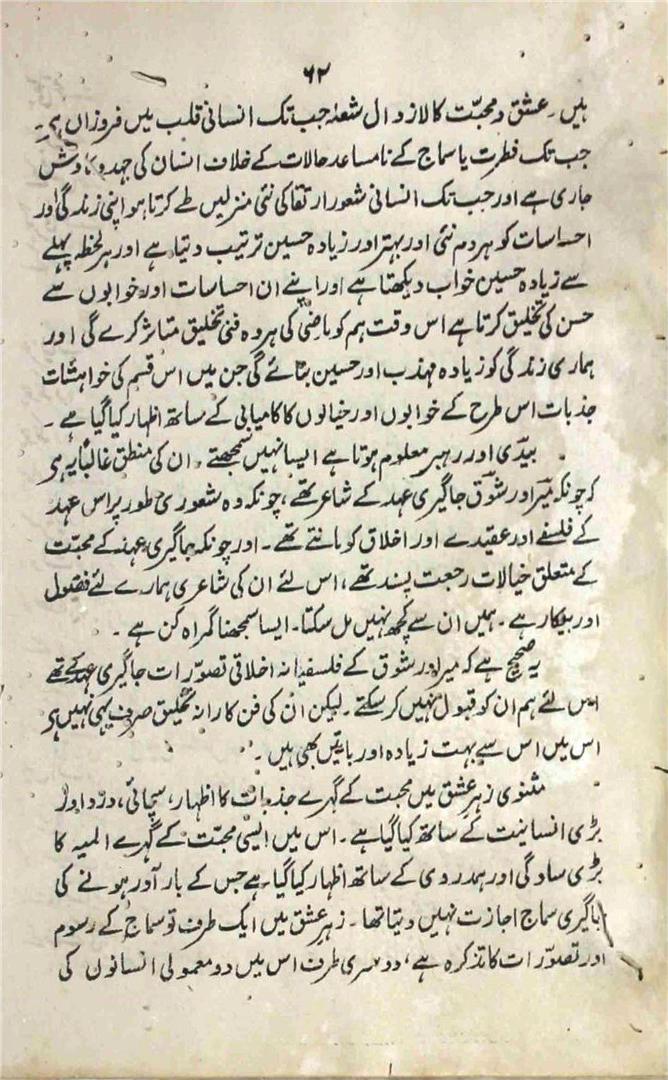 ۶۲
ہیں۔ عشق و محبّت کا لازوال شعلہ جب تک انسانی قلب میں فروزاں ہے۔
جب تک فطرت یا سماج کے نامساعد حالات کے خلاف انسان کی جہد و کاوش
جاری ہے اور جب تک انسانی شعور ارتقا کی نئی منزلیں طے کرتا ہو اپنی زندگی اور
احساسات کو ہر دم نئی اور بہتر اور زیادہ حسین ترتیب دیتا ہے اور ہر لحظہ پہلے
سے زیادہ حسین خواب دیکھتا ہے اور اپنے ان احساسات اور خوابوں سے
حسن کی تخلیق کرتا ہے اس وقت ہم کو ماضی کی ہر وہ فنی تخلیق متاثر کرے گی اور
ہماری زندگی کو زیادہ مہذب اور حسین بنائے گی جن میں اس قسم کی خواہشات
جذبات اس طرح کے خوابوں اور خیالوں کا کامیابی کے ساتھ اظہار کیا گیا ہے۔
بیدی اور رہبر معلوم ہوتا ہے ایسا نہیں سمجھتے۔ ان کی منطق غالباً یہ ہی
کہ چونکہ میر اور شوق جاگیری عہد کے شاعر تھے، چونکہ وہ شعوری طور پر اس عہد
کے فلسفے اور عقیدے اور اخلاق کو مانتے تھے۔ اور چونکہ جاگیری عہد کے محبت
کے متعلق خیالات رجعت پسند تھے، اس لئے ان کی شاعری ہمارے لئے فضول
اور بیکار ہے۔ ہمیں ان سے کچھ نہیں مل سکتا۔ ایسا سمجھنا گمراہ کن ہے۔
یہ صحیح ہے کہ میر اور شوق کے فلسفیانہ اخلاقی تصوّرات جاگیری عہد کے تھے
اس لئے ہم ان کو قبول نہیں کر سکتے۔ لیکن ان کی فن کارانہ تخلیق صرف یہی نہیں ہی
اس میں اس سے بہت زیادہ اور باتیں بھی ہیں۔
مثنوی زہرِ عشق میں محبت کے گہرے جذبات کا اظہار، سچائی، درد اور
بڑی انسانیت کے ساتھ کیا گیا ہے۔ اس میں ایسی محبّت کے گہرے المیہ کا
بڑی سادگی اور ہمدردی کے ساتھ اظہار کیا گیا ہے جس کے بار آور ہونے کی
جاگیری سماج اجازت نہیں دیتا تھا۔ زہرِ عشق میں ایک طرف تو سماج کے رسوم
اور تصوّرات کا تذکرہ ہے، دوسری طرف اس میں دو معمولی انسانوں کی